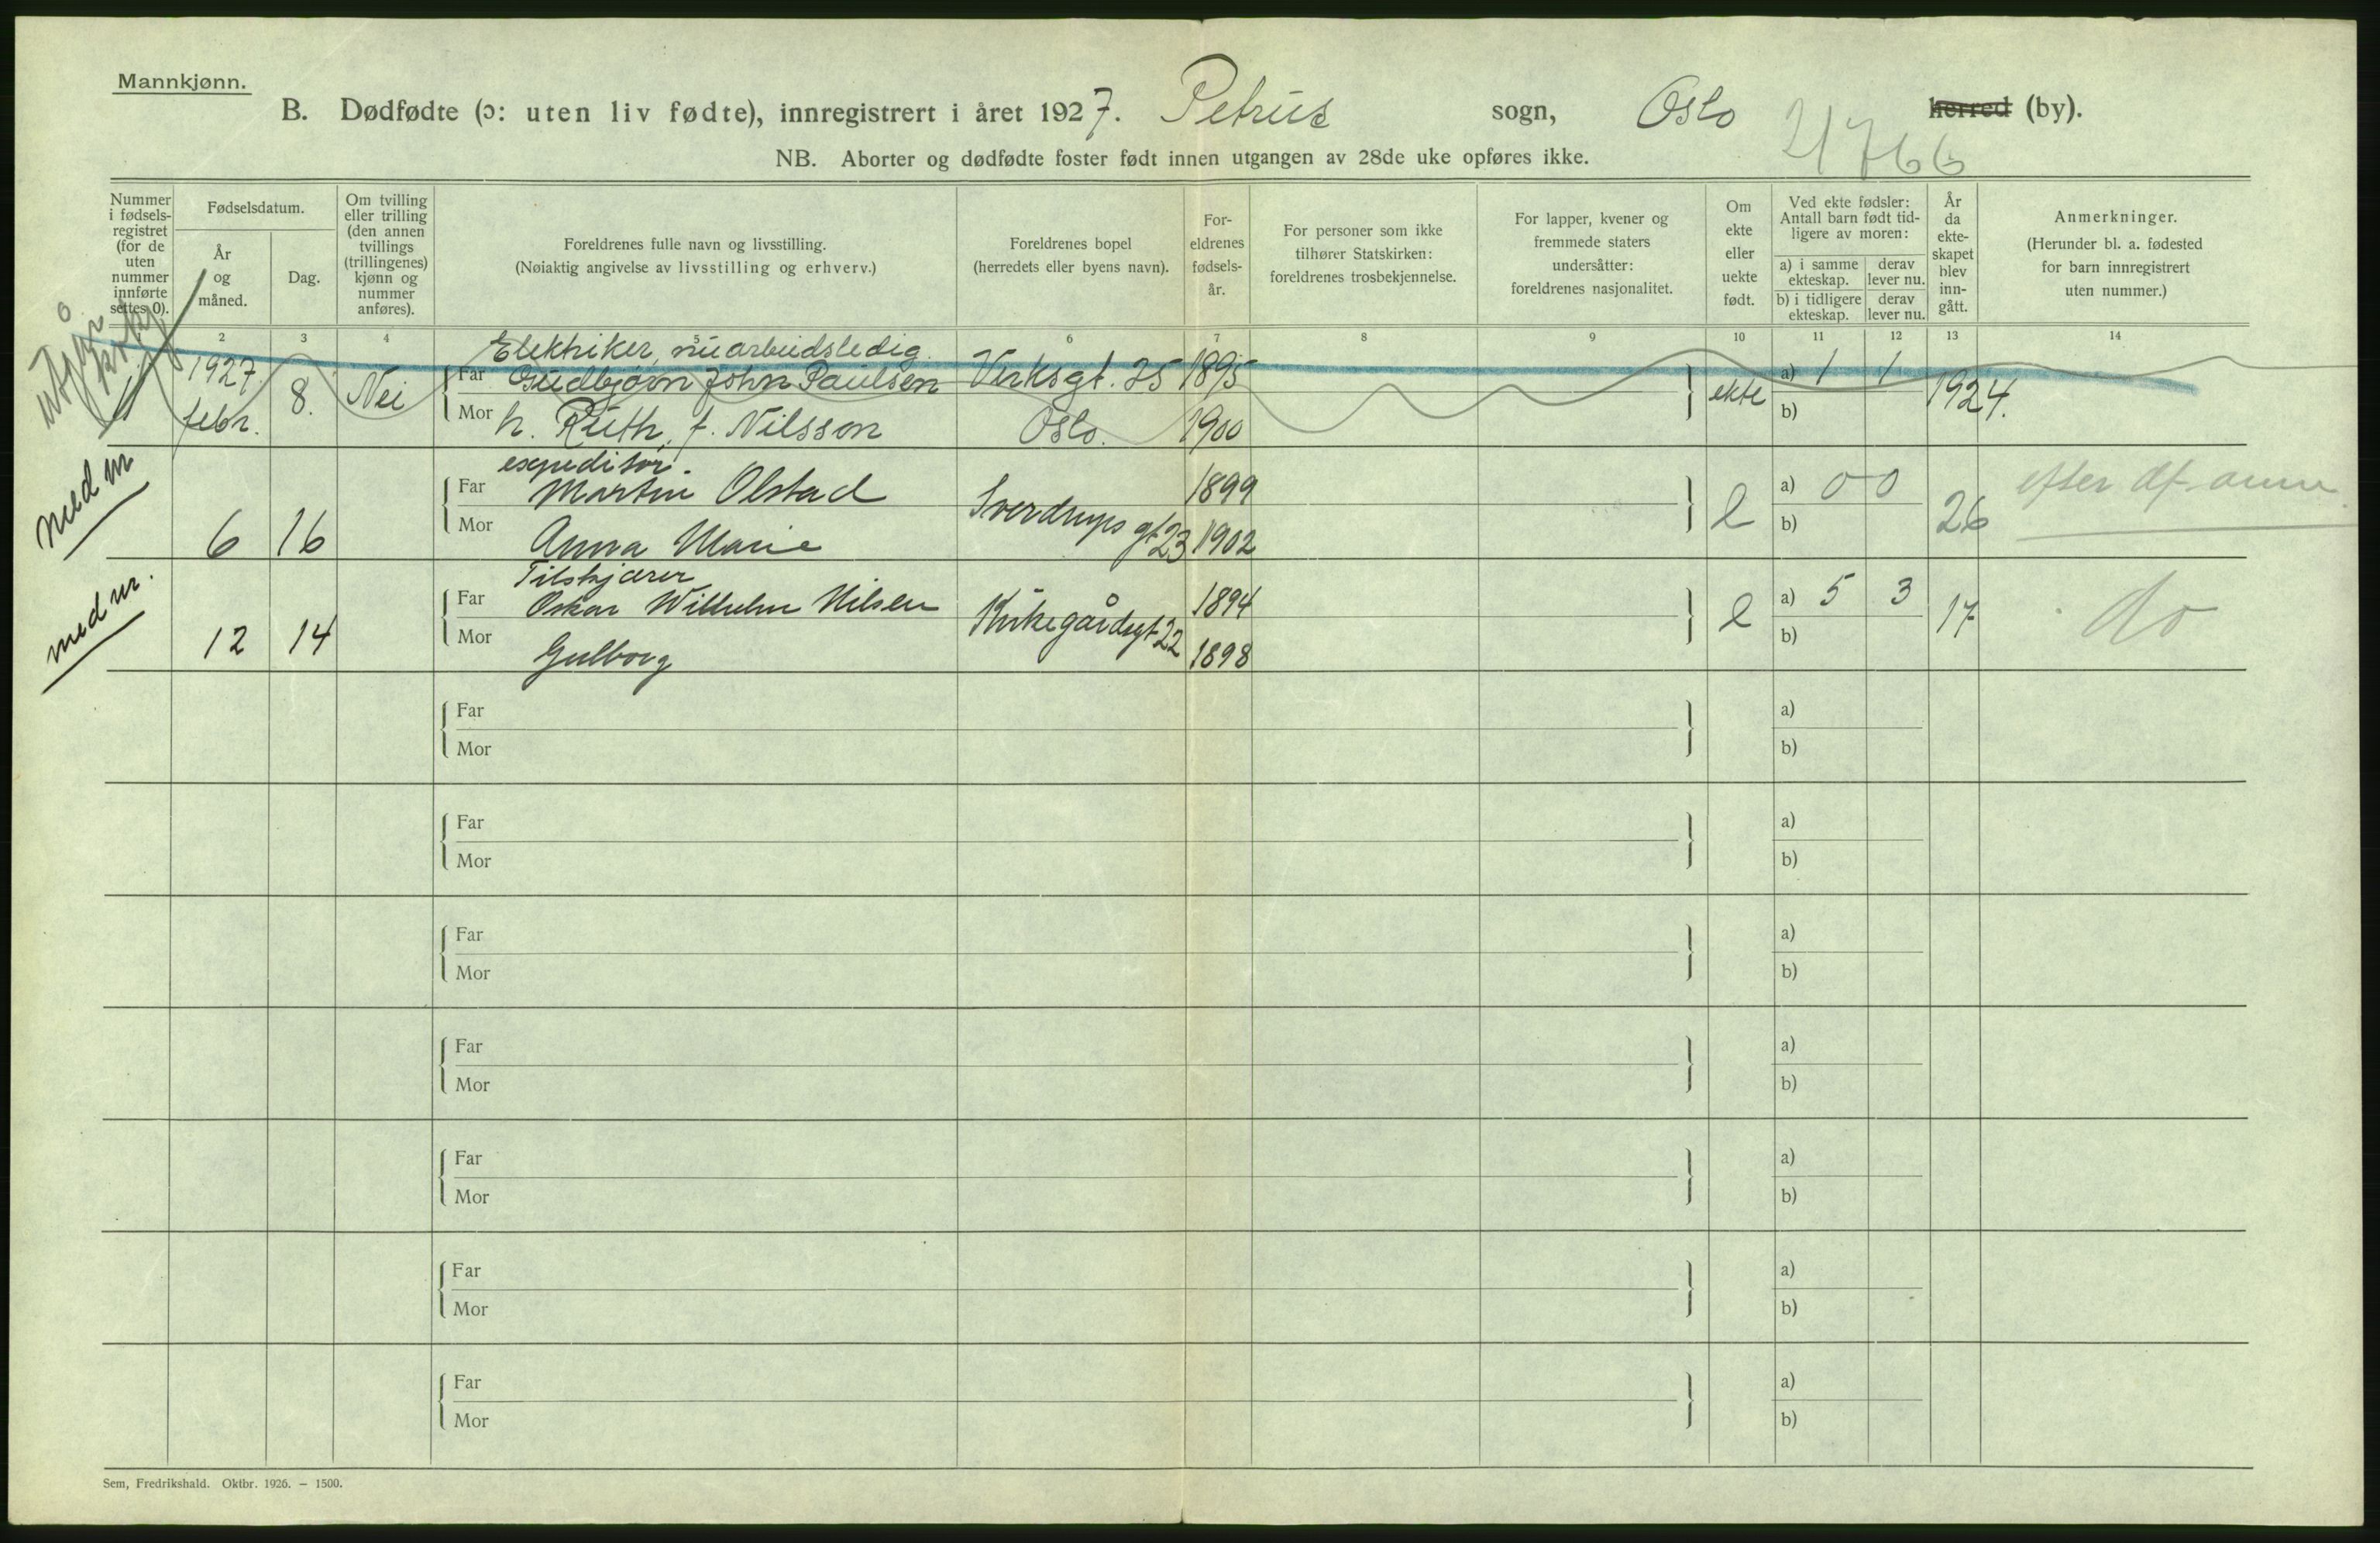 Mannkjønn.
B. Dødfødte (ɔ: uten liv fødte), innregistrert i året 1927. Petrus sogn, Oslo herred (by).
21766
NB. Aborter og dødfødte foster født innen utgangen av 28de uke opføres ikke.
Nummer i fødsels-registret (for de uten nummer innførte settes 0).
Fødselsdatum.
År og måned.
Dag.
Om tvilling eller trilling (den annen tvillings (trillingenes) kjønn og nummer anføres).
Foreldrenes fulle navn og livsstilling.
(Nøiaktig angivelse av livsstilling og erhverv.)
Foreldrenes bopel
(herredets eller byens navn).
For-eldrenes fødsels-år.
For personer som ikke tilhører Statskirken: foreldrenes trosbekjennelse.
For lapper, kvener og fremmede staters undersåtter: foreldrenes nasjonalitet.
Om ekte eller uekte født.
Ved ekte fødsler: Antall barn født tid-ligere av moren:
a) i samme ekteskap.
derav lever nu.
b) i tidligere ekteskap.
derav lever nu.
År da ekte-skapet blev inn-gått.
Anmerkninger.
(Herunder bl. a. fødested for barn innregistrert uten nummer.)
2 3 4 6 7 8 9 10 11 12 13 14
Elektriker, nu arbeidsledig.
1927. febr. 8. Nei
Far Gudbjørn John Paulsen Verksgt. 25 1895 ekte a) 1 1 1924.
Mor h. Ruth, f. Nilsson Oslo. 1900 b)
med nr
expeditør.
Far Martin Olstad Sverdrups gt 23 1899 a) 0 0 efter df.
6 16
Mor Anna Marie 1902 e b) 26
med nr.
Tilskjærer
Far Oskar Wilhelm Nilsen Kirkegårdsgt 22 1894 e a) 5 3 17 do
12 14
Mor Gulborg 1898 b)
Far a)
Mor b)
Far a)
Mor b)
Far a)
Mor b)
Far a)
Mor b)
Far a)
Mor b)
Far a)
Mor b)
Far a)
Mor b)
Sem, Fredrikshald. Oktbr. 1926. — 1500.